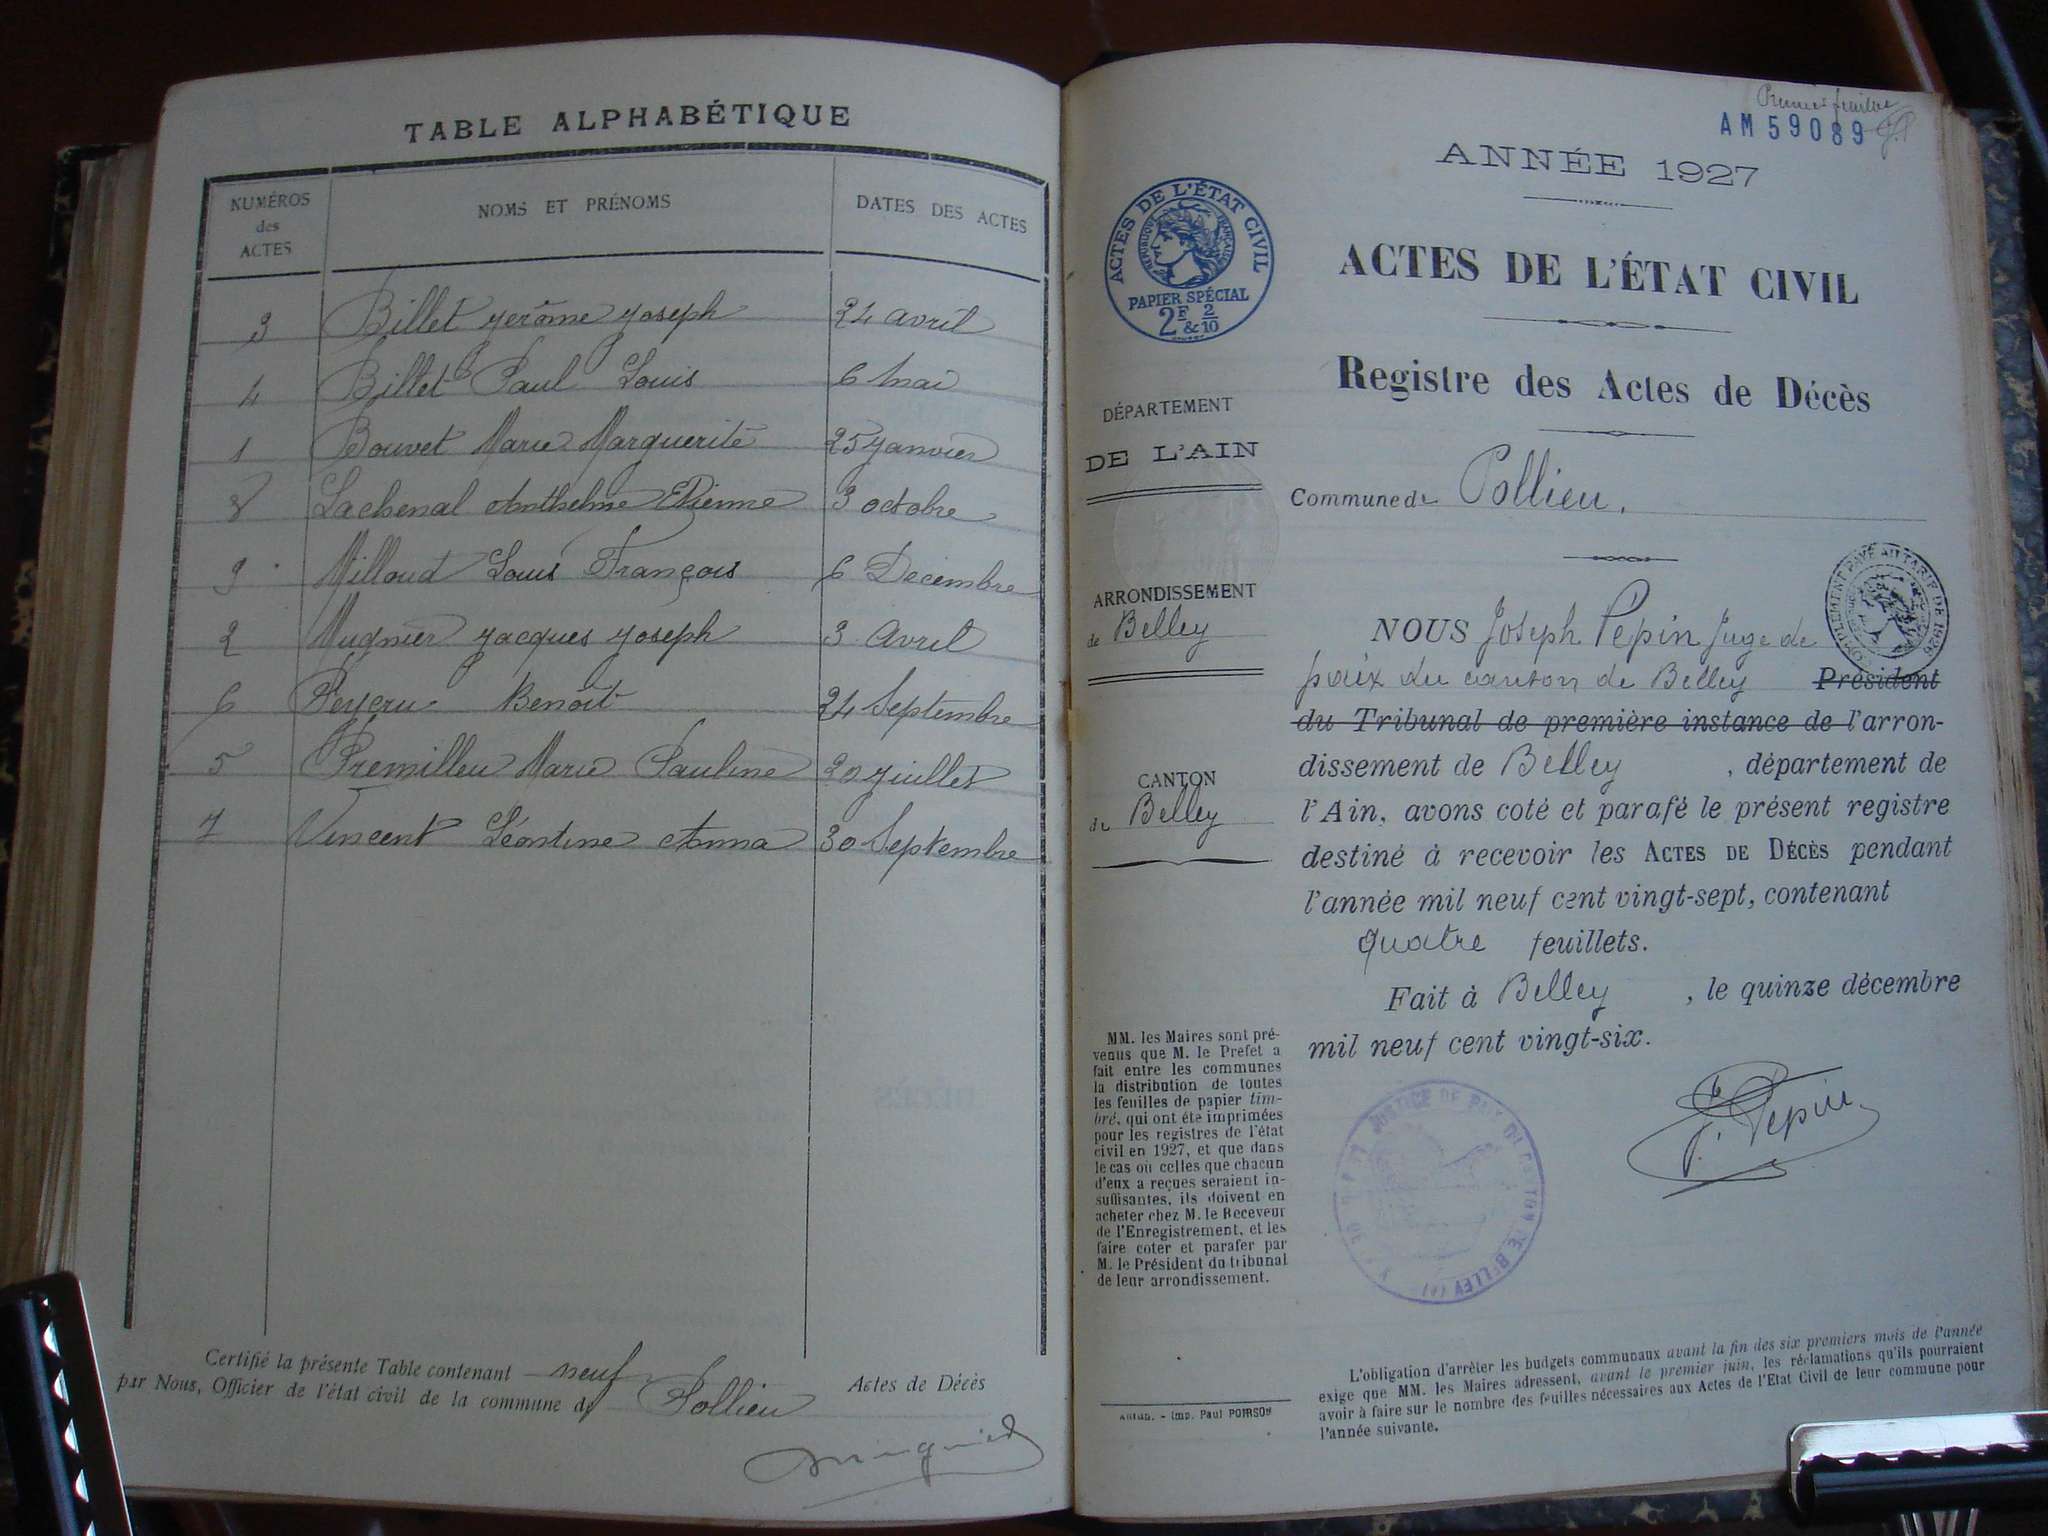 TABLE ALPHABÉTIQUE
NUMÉROS des ACTES NOMS ET PRÉNOMS DATES DES ACTES
3 Billet Jérôme Joseph 24 avril
4 Billet Paul Louis 6 Mai
1 Bouvet Marie Marguerite 25 Janvier
8 Lachenal Anthelme Etienne 3 octobre
9 Milloud Louis François 6 Décembre
2 Mugnier Jacques Joseph 3 Avril
6 Peyeru Benoît 24 Septembre
5 Premilleu Marie Pauline 20 Juillet
7 Vincent Léontine Anna 30 Septembre
Certifié la présente Table contenant neuf Actes de Décès
par Nous, Officier de l'état civil de la commune de Pollieu
Premier feuillet
AM 59089
ANNÉE 1927
ACTES DE L'ÉTAT CIVIL
RÉPUBLIQUE FRANÇAISE
PAPIER SPÉCIAL
2F & 2/10
ACTES DE L'ÉTAT CIVIL
Registre des Actes de Décès
DÉPARTEMENT
DE L'AIN
Commune de Pollieu.
ARRONDISSEMENT
de Belley
CANTON
de Belley
COMPLÉMENT PAYÉ AU TARIF DE 1926
NOUS Joseph Pépin Juge de
paix du canton de Belley Président
du Tribunal de première instance de l'arron-
dissement de Belley, département de
l'Ain, avons coté et parafé le présent registre
destiné à recevoir les ACTES DE DÉCÈS pendant
l'année mil neuf cent vingt-sept, contenant
quatre feuillets.
Fait à Belley, le quinze décembre
mil neuf cent vingt-six.
J. Pépin
JUSTICE DE PAIX DU CANTON DE BELLEY
MM. les Maires sont pré-
venus que M. le Préfet a
fait entre les communes
la distribution de toutes
les feuilles de papier tim-
bré, qui ont été imprimées
pour les registres de l'état
civil en 1927, et que dans
le cas où celles que chacun
d'eux a reçues seraient in-
suffisantes, ils doivent en
acheter chez M. le Receveur
de l'Enregistrement, et les
faire coter et parafer par
M. le Président du tribunal
de leur arrondissement.
Imp. Paul POIRSON
L'obligation d'arrêter les budgets communaux avant la fin des six premiers mois de l'année
exige que MM. les Maires adressent, avant le premier juin, les réclamations qu'ils pourraient
avoir à faire sur le nombre des feuilles nécessaires aux Actes de l'Etat Civil de leur commune pour
l'année suivante.